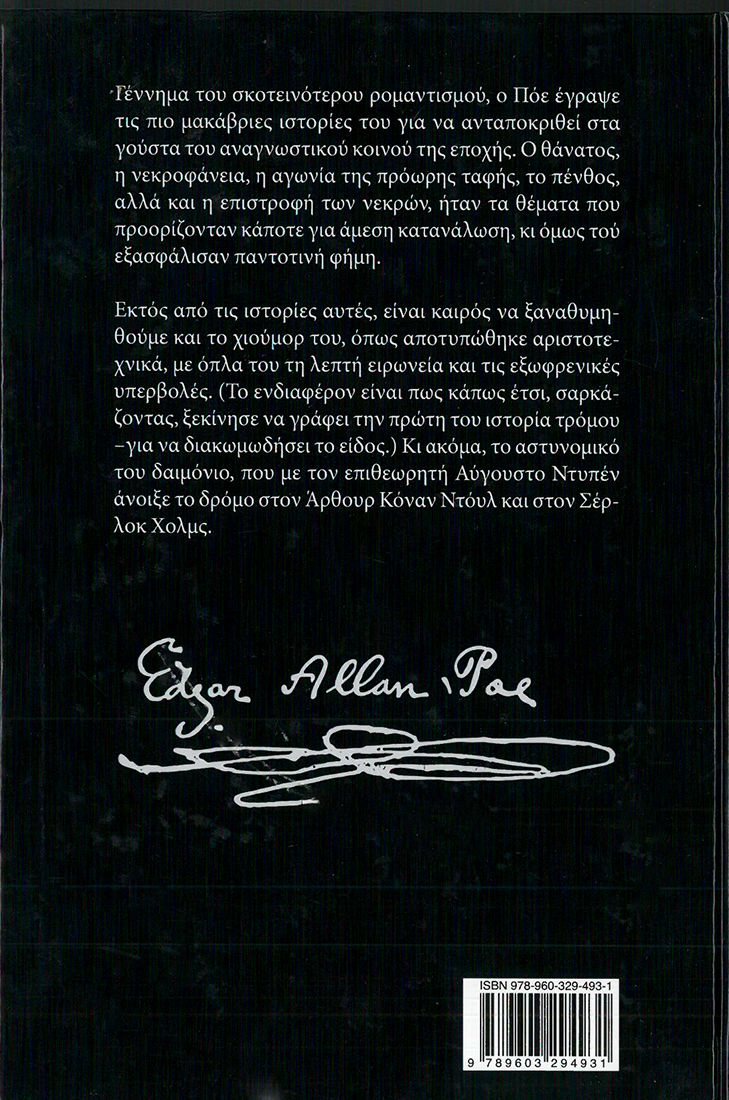 Γέννημα του σκοτεινότερου ρομαντισμού, ο Πόε έγραψε
τις πιο μακάβριες ιστορίες του για να ανταποκριθεί στα
γούστα του αναγνωστικού κοινού της εποχής. Ο θάνατος,
η νεκροφάνεια, η αγωνία της πρόωρης ταφής, το πένθος,
αλλά και η επιστροφή των νεκρών, ήταν τα θέματα που
προορίζονταν κάποτε για άμεση κατανάλωση, κι όμως τού
εξασφάλισαν παντοτινή φήμη.
Εκτός από τις ιστορίες αυτές, είναι καιρός να ξαναθυμη-
θούμε και το χιούμορ του, όπως αποτυπώθηκε αριστοτε-
χνικά, με όπλα του τη λεπτή ειρωνεία και τις εξωφρενικές
υπερβολές. (Το ενδιαφέρον είναι πως κάπως έτσι, σαρκά-
ζοντας, ξεκίνησε να γράφει την πρώτη του ιστορία τρόμου
–για να διακωμωδήσει το είδος.) Κι ακόμα, το αστυνομικό
του δαιμόνιο, που με τον επιθεωρητή Αύγουστο Ντυπέν
άνοιξε το δρόμο στον Άρθουρ Κόναν Ντόυλ και στον Σέρ-
λοκ Χολμς.
Edgar Allan Poe
ISBN 978-960-329-493-1
9 789603 294931